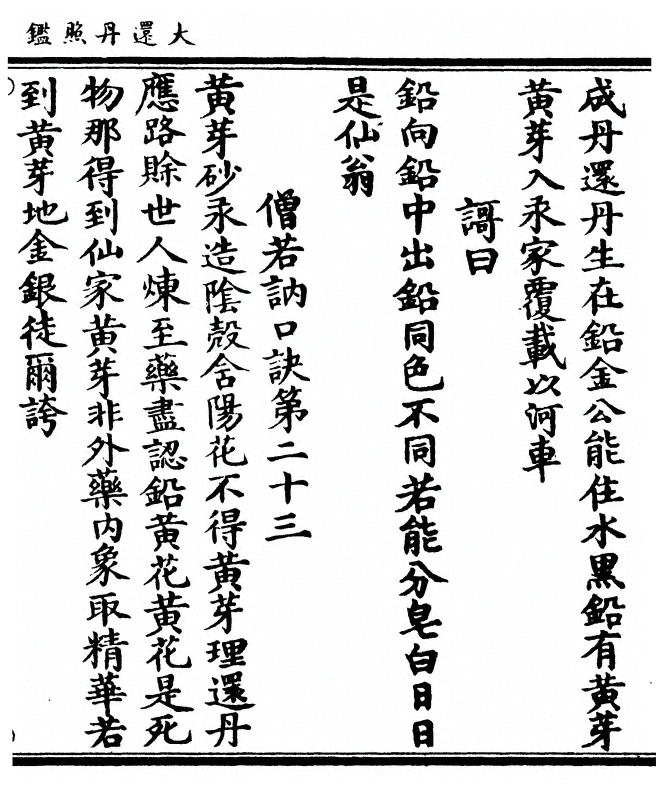 大還丹照鑑
成丹還丹生在鉛金公能住水黑鉛有黃芽
黃芽入汞家覆載以河車
謌曰
鉛向鉛中出鉛同色不同若能分皂白日日
是仙翁
僧若訥口訣第二十三
黃芽砂汞造陰殼含陽花不得黃芽理還丹
應路賒世人煉至藥盡認鉛黃花黃花是死
物那得到仙家黃芽非外藥內象取精華若
到黃芽地金銀徒爾誇